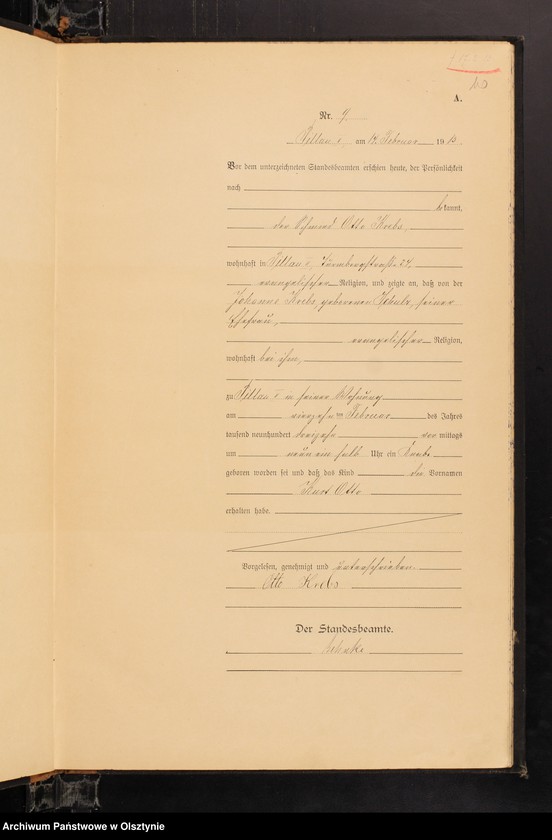 A.
Nr. 9
Pillau I, am 14. Februar 1913
Vor dem unterzeichneten Standesbeamten erschien heute, der Persönlichkeit
nach
bekannt,
der Otto Krebs,
wohnhaft in Pillau I, 24,
evangelischer Religion, und zeigte an, daß von der
Johanne Krebs, geborenen Schulz, seiner
Ehefrau,
evangelischer Religion,
wohnhaft bei ihm,
zu Pillau I in seiner Wohnung
am vierzehnten Februar des Jahres
tausend neunhundert dreizehn vormittags
um neun ein halb Uhr ein Knabe
geboren worden sei und daß das Kind die Vornamen
Kurt Otto
erhalten habe.
Vorgelesen, genehmigt und unterschrieben.
Otto Krebs
Der Standesbeamte.
Archiwum Państwowe w Olsztynie